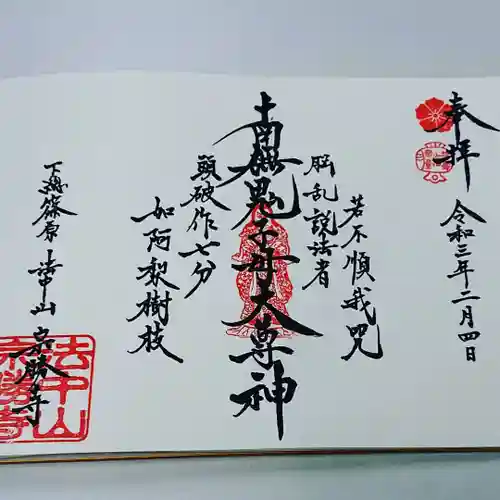 奉拝
令和三年二月四日
若不順我咒
脳乱説法者
南無鬼子母大尊神
頭破作七分
如阿梨樹枝
下総篠原 法中山 宗勝寺
法中山
宗勝寺